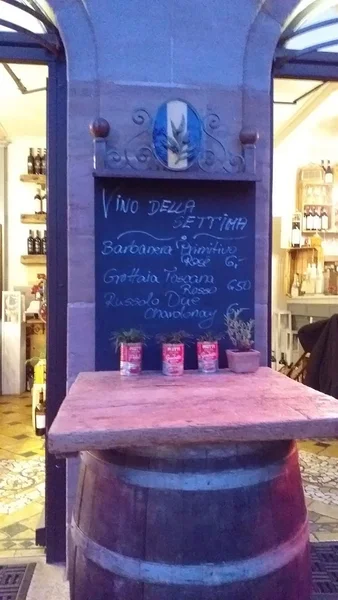 VINO DELLA
SETTIMA
Barbanera Primitivo
Rosé 6,-
Grottaia Toscana
Rosso 6,50
Russolo Due
Chardonnay 6,-
MUTTI